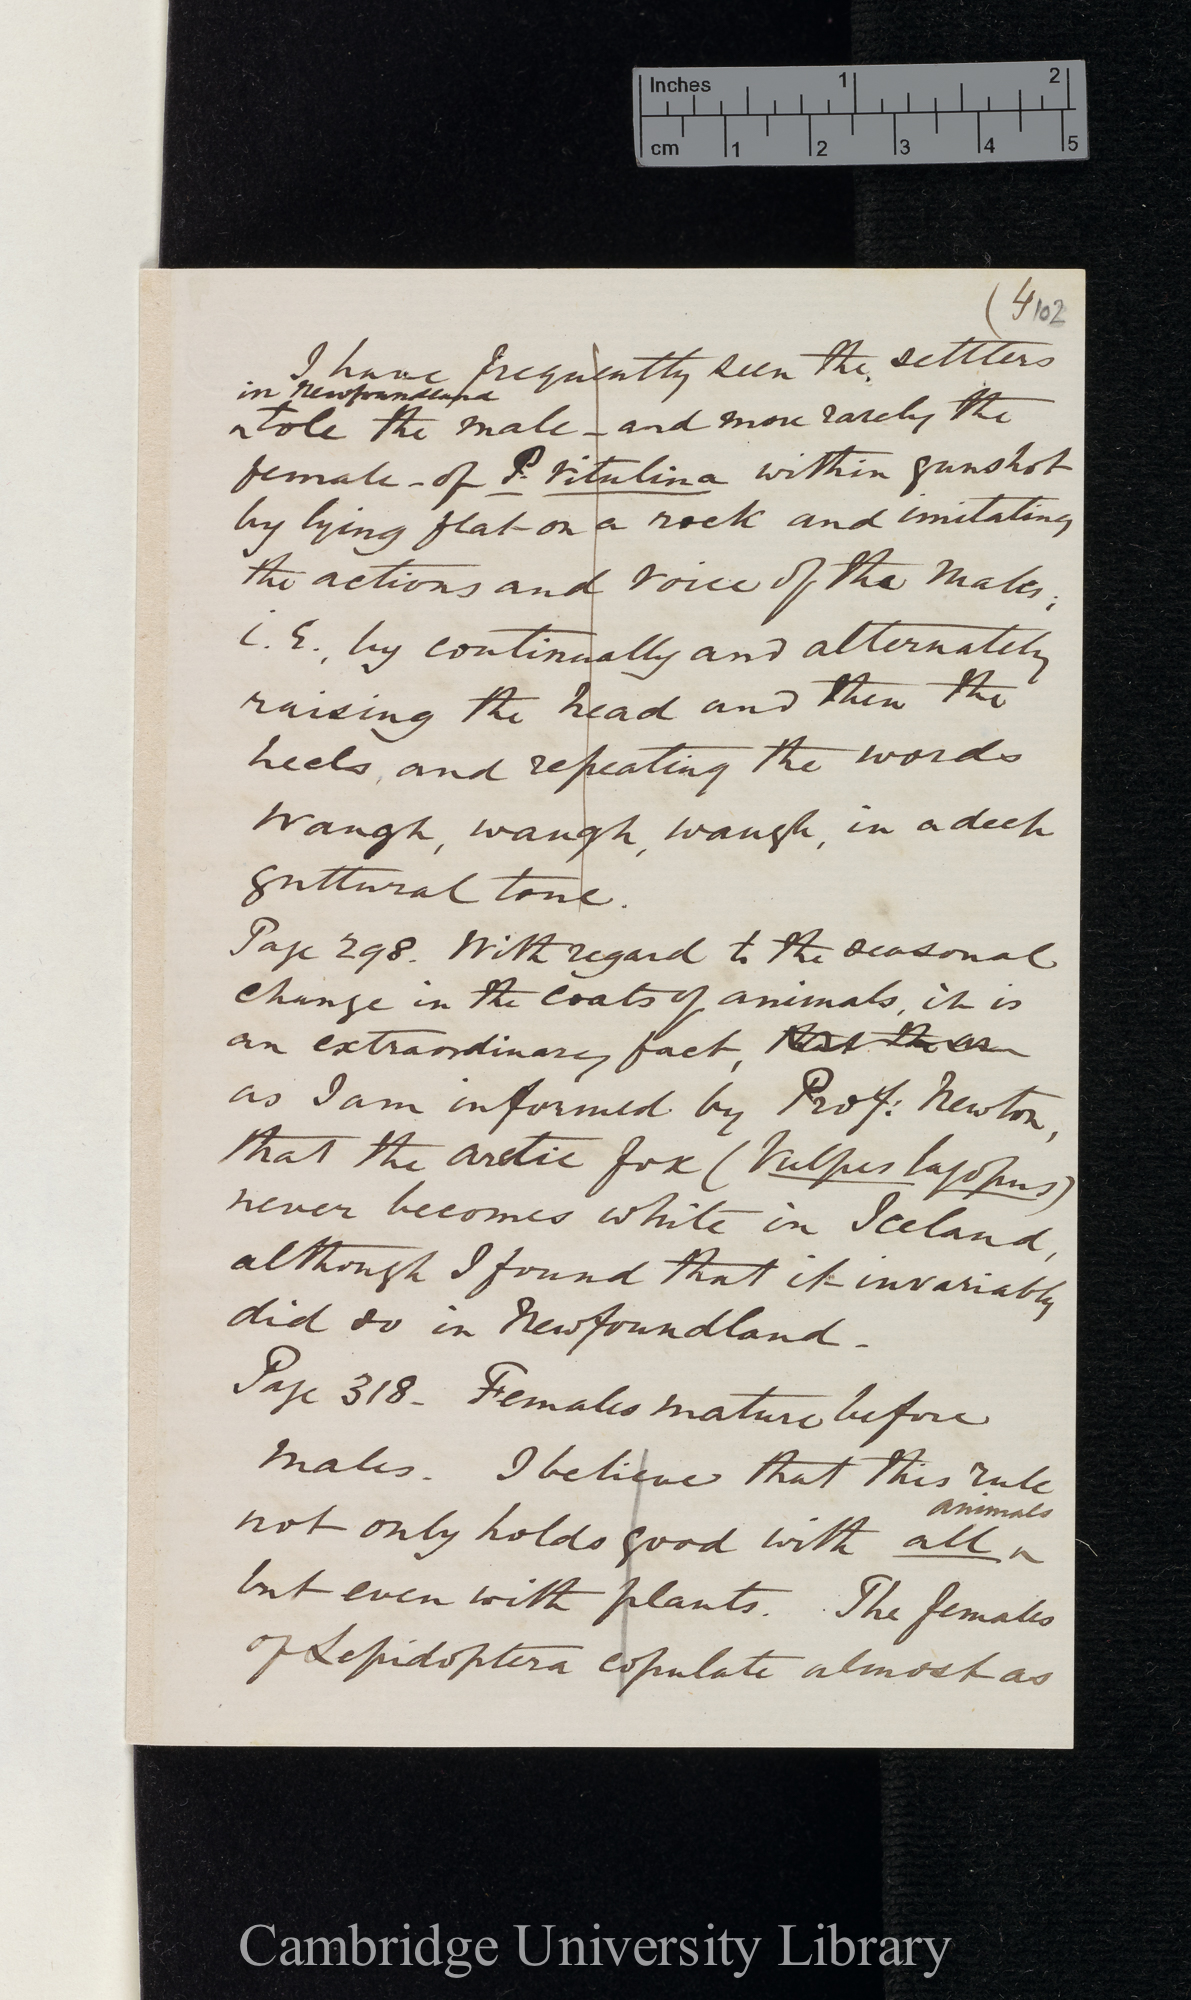 Inches 1 2
cm 1 2 3 4 5
(4 102
I have frequently seen the settlers
in Newfoundland
tole the male - and more rarely the
female - of P. vitulina within gunshot
by lying flat on a rock and imitating
the actions and voice of the males;
i.E., by continually and alternately
raising the head and then the
heels, and repeating the words
waugh, waugh, waugh, in a deep
guttural tone.
Page 298. With regard to the seasonal
change in the coats of animals, it is
an extraordinary fact,
as I am informed by Prof: Newton,
that the arctic fox (Vulpes lagopus)
never becomes white in Iceland,
although I found that it invariably
did so in Newfoundland -
Page 318 - Females mature before
males. I believe that this rule
animals
not only holds good with all
but even with plants. The females
of Lepidoptera copulate almost as
Cambridge University Library